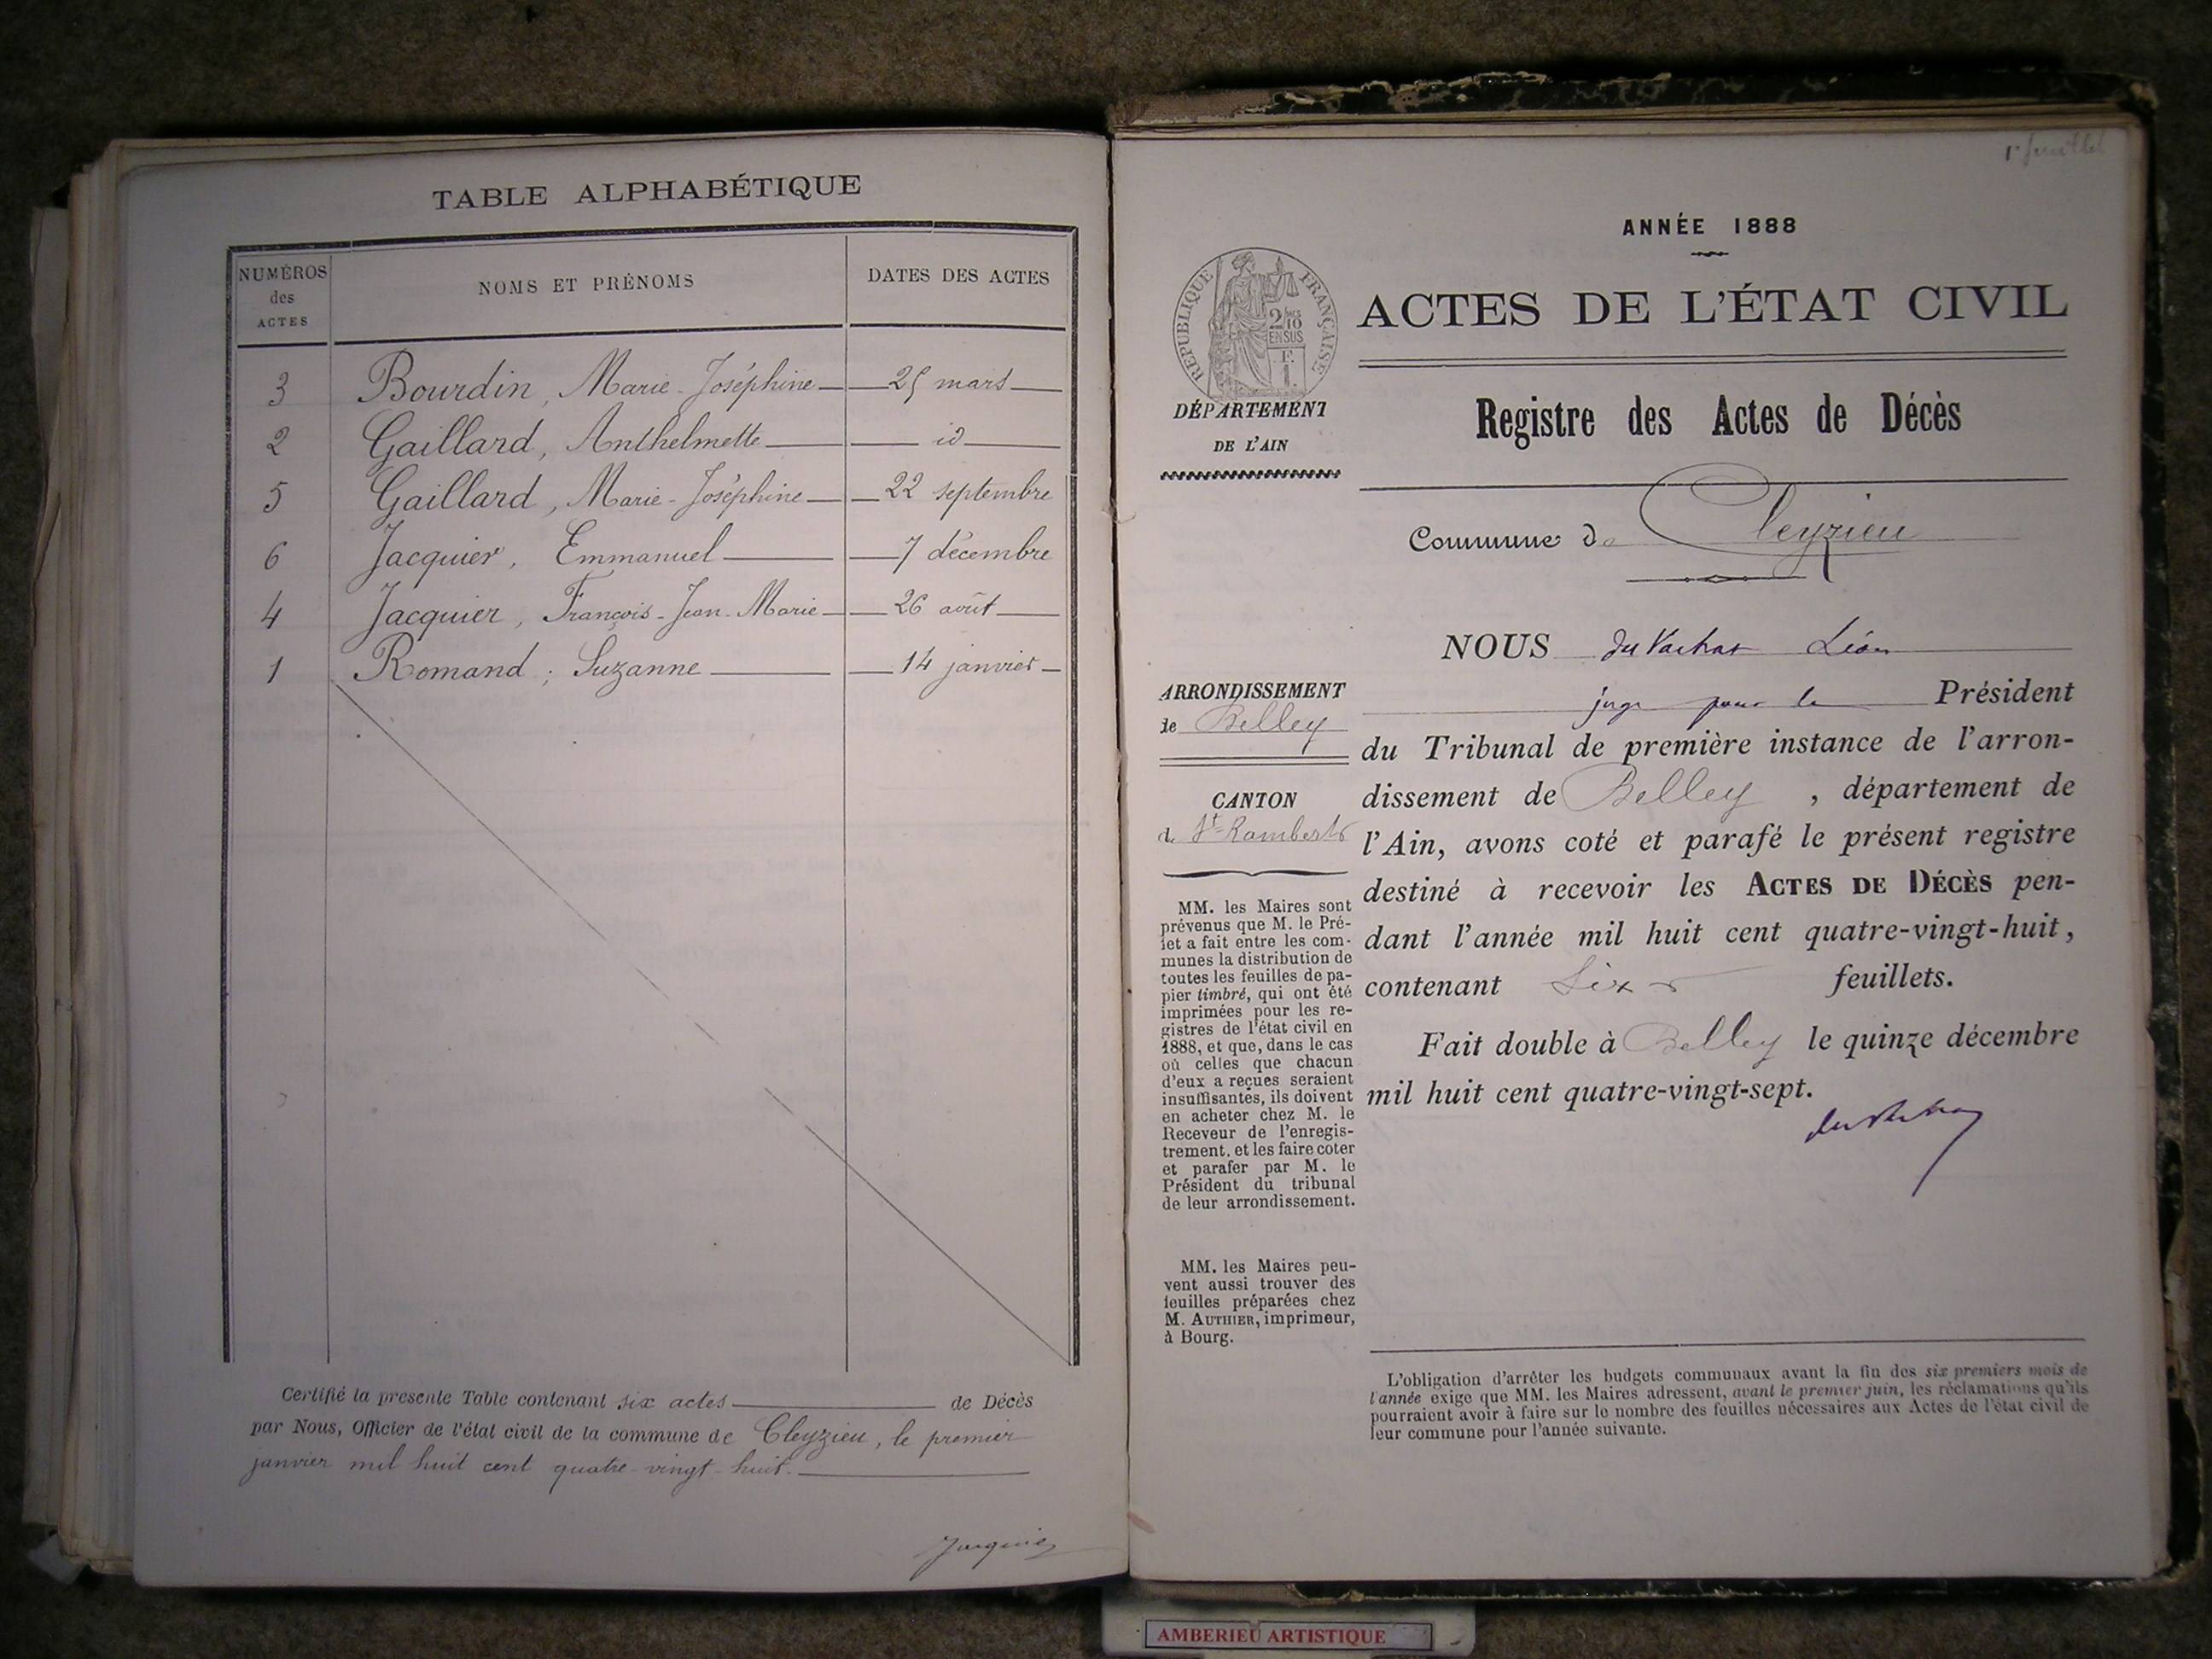 TABLE ALPHABÉTIQUE
NUMÉROS des ACTES
NOMS ET PRÉNOMS
DATES DES ACTES
3 Bourdin, Marie-Joséphine 25 mars
2 Gaillard, Anthelmette id
5 Gaillard, Marie-Joséphine 22 septembre
6 Jacquier, Emmanuel 7 décembre
4 Jacquier, François-Jean-Marie 26 août
1 Romand; Suzanne 14 janvier
Certifié la présente Table contenant six actes de Décès
par Nous, Officier de l'état civil de la commune de Cleyzieu, le premier
janvier mil huit cent quatre-vingt-huit.
Jacquier
1er feuillet
ANNÉE 1888
RÉPUBLIQUE FRANÇAISE
2/10 EN SUS
F. 1.
ACTES DE L'ÉTAT CIVIL
DÉPARTEMENT
DE L'AIN
Registre des Actes de Décès
Commune de Cleyzieu
ARRONDISSEMENT
de Belley
CANTON
de St-Rambert
MM. les Maires sont
prévenus que M. le Pré-
fet a fait entre les com-
munes la distribution de
toutes les feuilles de pa-
pier timbré, qui ont été
imprimées pour les re-
gistres de l'état civil en
1888, et que, dans le cas
où celles que chacun
d'eux a reçues seraient
insuffisantes, ils doivent
en acheter chez M. le
Receveur de l'enregis-
trement. et les faire coter
et parafer par M. le
Président du tribunal
de leur arrondissement.
MM. les Maires peu-
vent aussi trouver des
feuilles préparées chez
M. AUTHIER, imprimeur,
à Bourg.
NOUS Léon
juge pour le Président
du Tribunal de première instance de l'arron-
dissement de Belley, département de
l'Ain, avons coté et parafé le présent registre
destiné à recevoir les ACTES DE DÉCÈS pen-
dant l'année mil huit cent quatre-vingt-huit,
contenant Six feuillets.
Fait double à Belley le quinze décembre
mil huit cent quatre-vingt-sept.
L'obligation d'arrêter les budgets communaux avant la fin des six premiers mois de
l'année exige que MM. les Maires adressent, avant le premier juin, les réclamations qu'ils
pourraient avoir à faire sur le nombre des feuilles nécessaires aux Actes de l'état civil de
leur commune pour l'année suivante.
AMBERIEU ARTISTIQUE